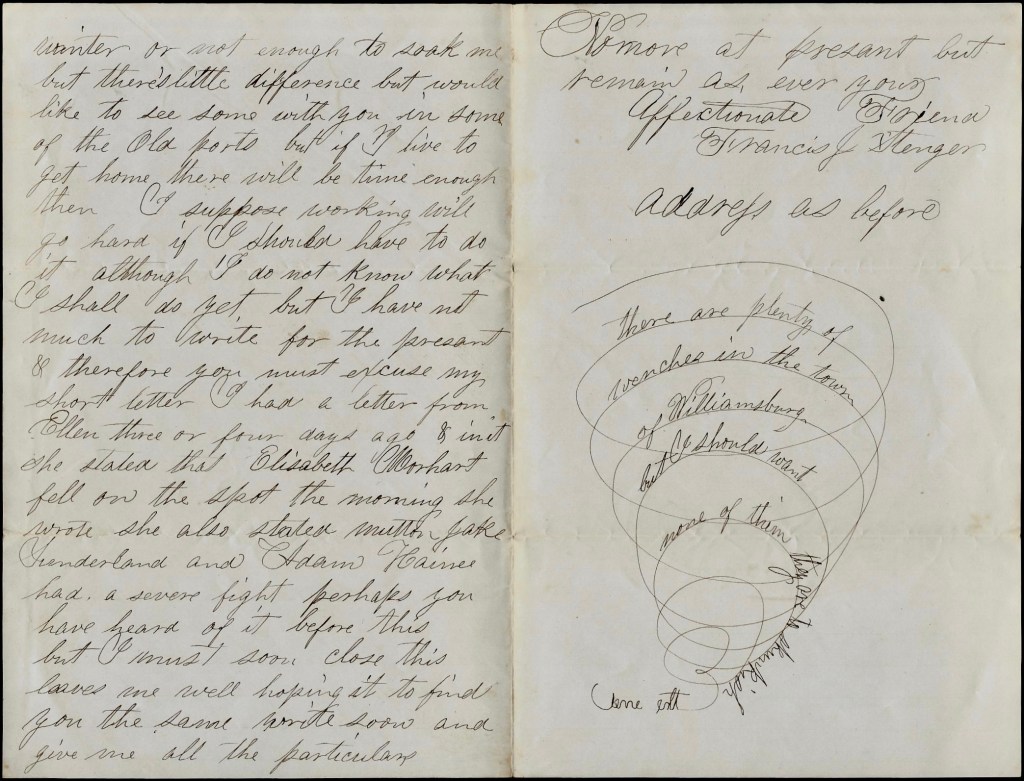 winter or not enough to soak me
but theres little difference but would
like to see some with you in some
of the Old ports but if I live to
get home there will be time enough
then I suppose working will
go hard if I should have to do
it although I do not know what
I shall do yet but I have not
much to write for the presant
& therefore you must excuse my
short letter I had a letter from
Ellen three or four days ago & in it
she stated that Elisabeth
fell on the spot the morning she
wrote she also stated mutton Jake
Sunderland and Adam Haines
had a severe fight perhaps you
have heard of it before this
but I must soon close this
leaves me well hoping it to find
you the same write soon and
give me all the particulars
No more at presant but
remain as ever your
Affectionate Friend
Francis J Stenger
address as before
there are plenty of
wenches in the town
of Williamsburg
but I should want
none of them
they are to skunkish